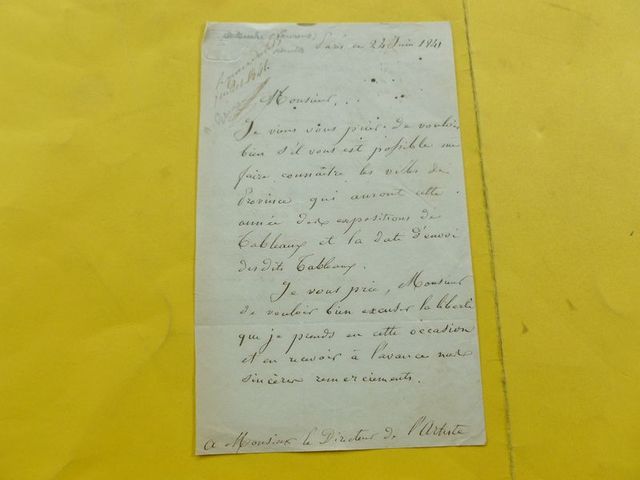 Paris ce 24 Juin 1841
Monsieur,
Je viens vous prier de vouloir
bien s'il vous est possible me
faire connaitre les villes de
Province qui auront cette
année des expositions de
Tableaux et la date d'envoi
desdits Tableaux.
Je vous prie, Monsieur
de vouloir bien excuser la liberté
que je prends en cette occasion
et en recevoir à l'avance mes
sincères remerciements.
A Monsieur le Directeur de l'Artiste